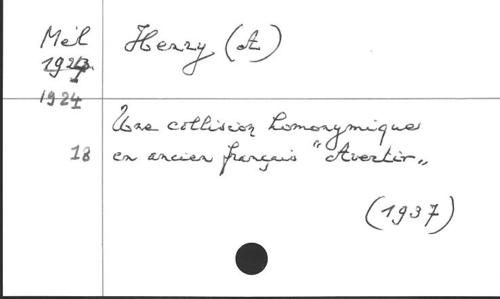 Mél Henry (A)
1924
Une collision homonymique
18 en ancien français "Avertir"
(1937)